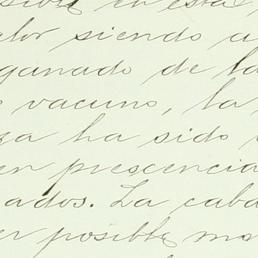 en esta
lor siendo a
ganado de la
vacuno, la
za ha sido
en prescencia
ados. La caba
er posible mo